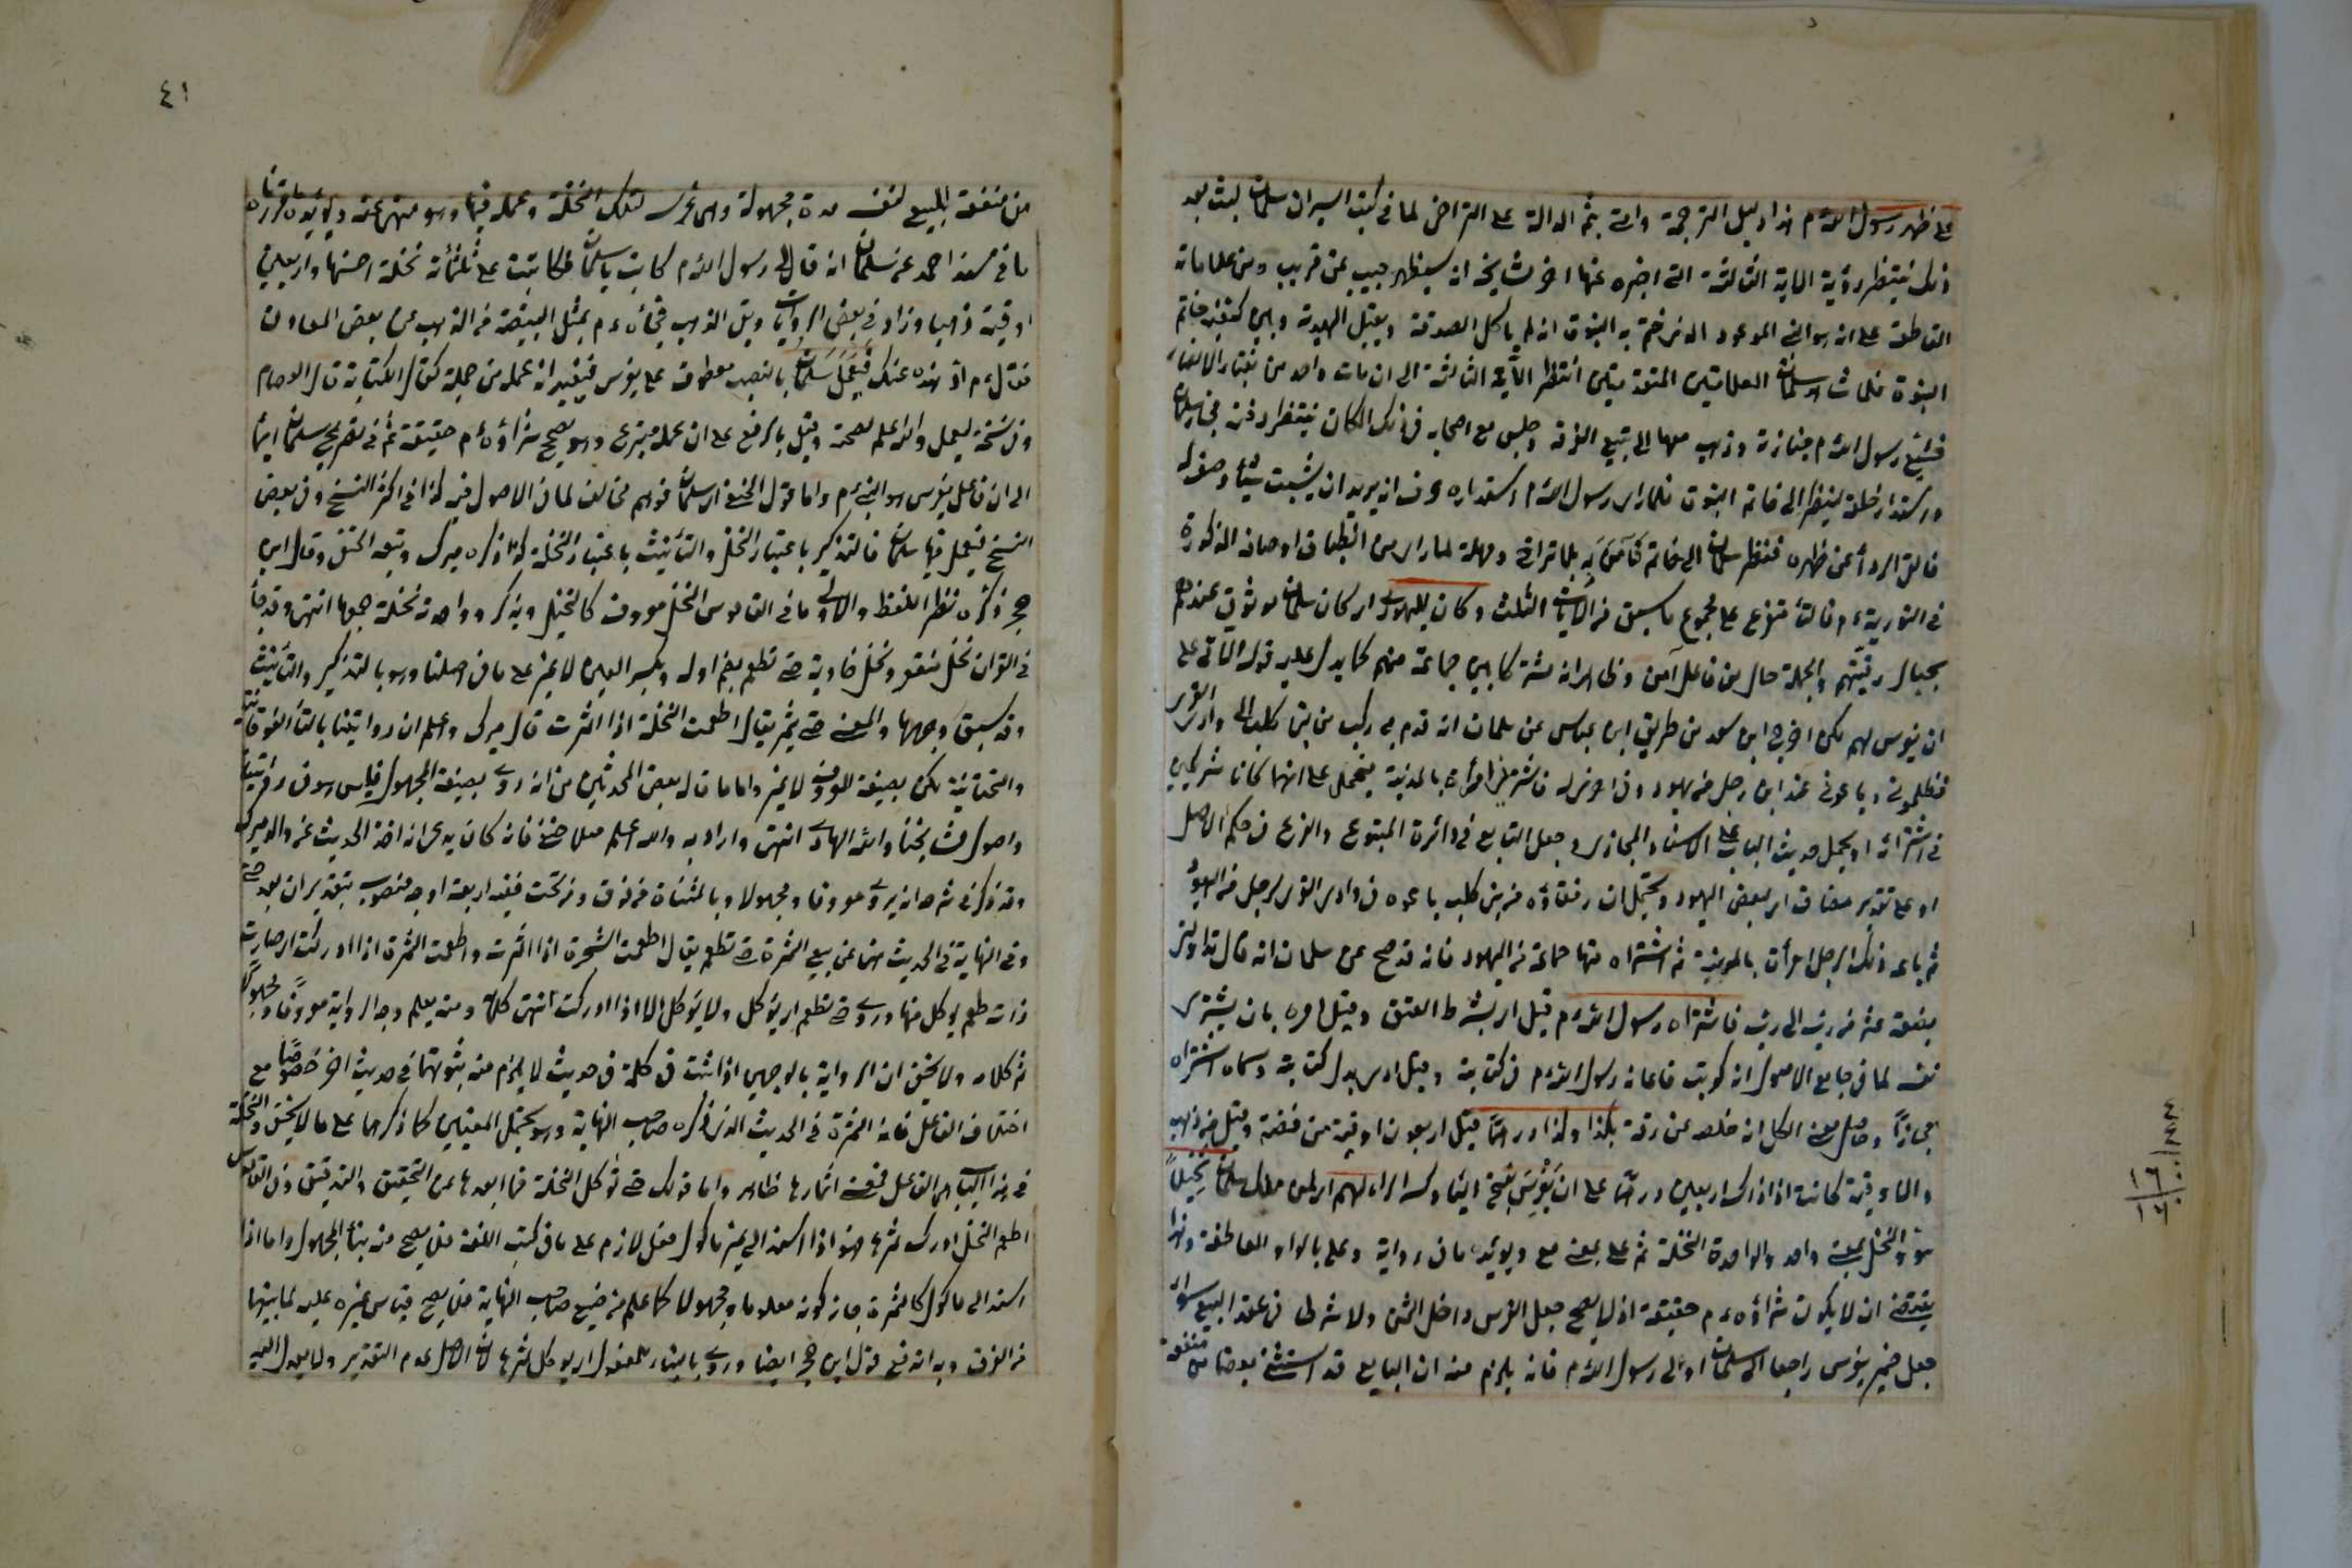 على ظهر رسول الله م هذا دليل الترجمة واتى بثم الدالة على التراخي لما في كتب السير ان سلمان لبث بعد
ذلك ينتظر رؤية الاية الثالثة التي اخبره عنها اخر مشايخه انه سيظهر حبيب عن قريب ومن علاماته
القاطعة على انه هو النبي الموعود الذي ختم به النبوة انه لم ياكل الصدقة ويقبل الهدية وبين كتفيه خاتم
النبوة فلما شاهد سلمان العلامتين المتقدمتين انتظر الآية الثالثة الى ان مات واحد من نقباء الانصار
فشيع رسول الله م جنازته وذهب معها الى بقيع الغرقد وجلس مع اصحابه في ذلك المكان ينتظر دفنه فجاء سلمان
واستدار خلفه لينظر الى خاتم النبوة فلما راى رسول الله م استدباره عرف انه يريد ان يثبت شيئا وصف له
فالقى الرداء عن ظهره فنظر سلمان الى خاتم فآمن به بلا تراخ ومهلة لما راى من انطباق اوصافه المذكورة
في التورية م فالفاء متفرع على مجموع ما سبق من الآيات الثلث وكان لليهود اي كان سلمان موثوق عندهم
بحبال رقيتهم والجملة حال من فاعل آمن وظاهره انه مشترك بين جماعة منهم كما يدل عليه قوله الآتي على
ان يغرس لهم لكن اخرج ابن سعد من طريق ابن عباس عن سلمان انه قدم في ركب من بني كلب الى وادي القرى
فظلموني وباعوني عبدا من رجل من يهود وفي اخرى له فاشترتني امرأة بالمدينة فيحمل على انهما كانا شريكين
في اشترائه او يحمل حديث الباب على الاسناد المجازي وجعل التابع في دائرة المتبوع والفرع في حكم الاصل
او على تقدير مضاف اي بعض اليهود ويحتمل ان رفقاؤه من بني كلب باعوه في وادي القرى لرجل من اليهود
ثم باعه ذلك الرجل امرأة بالمدينة ثم اشتراه منها جماعة من اليهود فانه قد صح عن سلمان انه قال تداولني
بضعة عشر من رب الى رب فاشتراه رسول الله م قيل اي بشرط العتق وقيل امره بان يشتري
نفسه لما في جامع الاصول انه كوتب فاعانه رسول الله م في كتابته وقيل ادى بدل كتابته وسماه اشتراه
مجازا وحاصل معنى الكل انه خلصه عن رقه بكذا وكذا درهما قيل اربعون اوقية من فضة وقيل من ذهب
والاوقية كانت اذ ذاك اربعين درهما على ان يغرس بفتح الياء وكسر الراء لهم اي لمن ملك سلمان نخيلا
هو والنخل بمعنى واحد والواحدة النخلة ثم على بمعنى مع ويؤيده ما في رواية وعلى بالواو العاطفة وهذا
يقتضي ان لا يكون شراؤه م حقيقة اذ لا يصح جعل الغرس داخل الثمن ولا شرطا في عقد البيع سواء
جعل ضمير يغرس راجعا الى سلمان او الى رسول الله م فانه يلزم منه ان البايع قد استثنى بعضا من منفعة
٤١
من منفعة المبيع لنفسه مدة مجهولة وهي غرس لتلك النخلة وعمله فيها وهو منهي عنه ويؤيده ما قررناه
ما في مسند احمد عن سلمان انه قال لي رسول الله م كاتب يا سلمان فكاتبت على ثلثمائة نخلة احييها واربعين
اوقية ذهبا وزاد في بعض الروايات وبقي الذهب فجاءه م بمثل البيضة من الذهب من بعض المعادن
فقال م اد هذه عنك فيعمل سلمان بالنصب معطوف على يغرس فيفيد ان عمله من جملة كمال الكتابة قال العصام
وفي نسخة ليعمل والله اعلم بصحته وقيل بالرفع على ان عمله متبرع وهو يصحح شراؤه م حقيقة ثم في تصريح سلمان ايماء
الى ان فاعل يغرس هو النبي م واما قول الحنفي اي سلمان فوهم مخالف لما في الاصول فيه كذا في اكثر النسخ وفي بعض
النسخ فيعمل فيها سلمان فالتذكير باعتبار النخل والتأنيث باعتبار النخلة كذا ذكره ميرك وتبعه الحنفي وقال ابن
حجر ذكره نظرا للفظ والاولى ما في القاموس النخل معروف كالنخيل ويذكر وواحدته نخلة جمعها انتهى وقد جاء
في القرآن نخل منقعر ونخل خاوية حتى تطعم بضم اوله وبكسر العين لا غير على ما في اصلنا وهو بالتذكير والتأنيث
وقد سبق وجهها والمعنى حتى يثمر يقال اطعمت النخلة اذا اثمرت قال ميرك واعلم ان روايتنا بالتاء الفوقانية
والتحتانية لكن بصيغة المعروف لا غير واما ما قال بعض المحدثين من انه روي بصيغة المجهول فليس هو في روايتنا
واصول مشايخنا والله الهادي انتهى واراد به والله اعلم معلا حنفي فانه كان يدعي انه اخذ الحديث عن والد ميرك
وقد ذكر في شرحه انه يروى معروفا ومجهولا وبالمثناة من فوق ومن تحت ففيه اربعة اوجه منصوب بتقدير ان بعد حتى
وفي النهاية في الحديث نهى عن بيع الثمرة حتى تطعم يقال اطعمت الشجرة اذا اثمرت واطعمت الثمرة اذا ادركت اي صارت
ذات طعم يؤكل منها وروي حتى تطعم اي يؤكل ولا يؤكل الا اذا ادركت انتهى كلامه ومنه يعلم وجه الرواية معروفا ومجهولا
ثم كلامه ولا يخفى ان الرواية بالوجهين اذا ثبت في كلمة في حديث لا يلزم منه ثبوتها في حديث اخر خصوصا مع
اختلاف الفاعل فانه الثمرة في الحديث الذي ذكره صاحب النهاية وهو يحتمل المعنيين كما ذكرهما على ما لا يخفى والنخلة
في هذا الباب هي الفاعل فمعنى اثمارها ظاهر واما قولك حتى تؤكل النخلة فما ابعدها عن التحقيق والتدقيق وفي القاموس
اطعم النخل ادرك ثمرها فهو اذا اسند الى غير ماكول فعل لازم على ما في كتب اللغة فلا يصح منه بناء المجهول واما اذا
اسند الى ماكول كالثمرة جاز كونه معلوما ومجهولا كما علم من صنيع صاحب النهاية فلا يصح قياس غيره عليه لما بينهما
من الفرق وبه اندفع قول ابن حجر ايضا وروي بالبناء للمفعول اي يؤكل ثمرها لان الاصل عدم التقدير ولا يعدل اليه